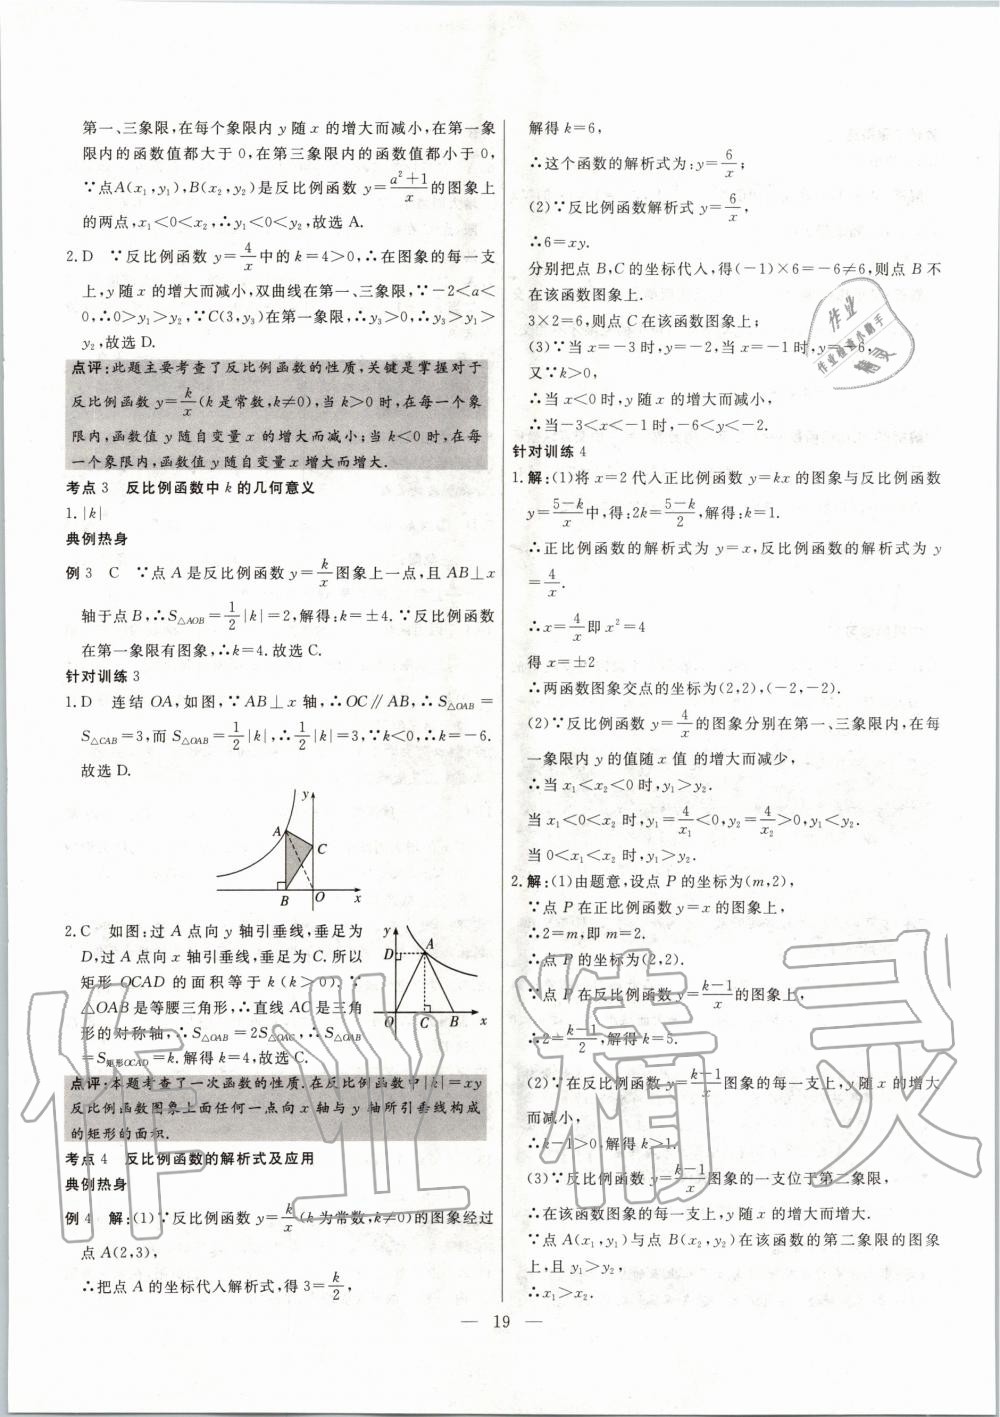 第一、三象限,在每个象限内 y 随 x 的增大而减小,在第一象
限内的函数值都大于 0,在第三象限内的函数值都小于 0,
∵点A(x₁,y₁),B(x₂,y₂)是反比例函数 y=(a²+1)/x 的图象上
的两点,x₁<0<x₂,∴y₁<0<y₂,故选 A.
2. D ∵反比例函数 y=4/x 中的 k=4>0,∴在图象的每一支
上,y 随 x 的增大而减小,双曲线在第一、三象限,∵-2<a<
0,∴0>y₁>y₂,∵C(3,y₃)在第一象限,∴y₃>0,∴y₃>y₁>
y₂,故选 D.
点评:此题主要考查了反比例函数的性质,关键是掌握对于
反比例函数 y=k/x(k 是常数,k≠0),当 k>0 时,在每一个象
限内,函数值 y 随自变量 x 的增大而减小;当 k<0 时,在每
一个象限内,函数值 y 随自变量 x 增大而增大.
考点 3 反比例函数中 k 的几何意义
1. |k|
典例热身
例 3 C ∵点 A 是反比例函数 y=k/x 图象上一点,且 AB⊥x
轴于点 B,∴S△AOB=1/2|k|=2,解得:k=±4.∵反比例函数
在第一象限有图象,∴k=4.故选 C.
针对训练 3
1. D 连结 OA,如图,∵AB⊥x 轴,∴OC∥AB,∴S△OAB=
S△CAB=3,而 S△OAB=1/2|k|,∴1/2|k|=3,∵k<0,∴k=-6.
故选 D.
y
A
C
B O x
2. C 如图:过 A 点向 y 轴引垂线,垂足为
D,过 A 点向 x 轴引垂线,垂足为 C.所以
矩形 OCAD 的面积等于 k(k>0).∵
△OAB 是等腰三角形,∴直线 AC 是三角
形的对称轴,∴S△OAB=2S△OAC,∴S△OAB
=S矩形OCAD=k.解得 k=4,故选 C.
y
A
D
O C B x
点评:本题考查了一次函数的性质.在反比例函数中|k|=xy
反比例函数图象上面任何一点向 x 轴与 y 轴所引垂线构成
的矩形的面积.
考点 4 反比例函数的解析式及应用
典例热身
例 4 解:(1)∵反比例函数 y=k/x(k 为常数,k≠0)的图象经过
点 A(2,3),
∴把点 A 的坐标代入解析式,得 3=k/2,
解得 k=6,
∴这个函数的解析式为:y=6/x;
(2)∵反比例函数解析式 y=6/x,
∴6=xy.
分别把点 B,C 的坐标代入,得(-1)×6=-6≠6,则点 B 不
在该函数图象上.
3×2=6,则点 C 在该函数图象上;
(3)∵当 x=-3 时,y=-2,当 x=-1 时,y=-6,
又∵k>0,
∴当 x<0 时,y 随 x 的增大而减小,
∴当-3<x<-1 时,-6<y<-2.
针对训练 4
1. 解:(1)将 x=2 代入正比例函数 y=kx 的图象与反比例函数
y=(5-k)/x 中,得:2k=(5-k)/2,解得:k=1.
∴正比例函数的解析式为 y=x,反比例函数的解析式为 y
=4/x.
∴x=4/x 即 x²=4
得 x=±2
∴两函数图象交点的坐标为(2,2),(-2,-2).
(2)∵反比例函数 y=4/x 的图象分别在第一、三象限内,在每
一象限内 y 的值随 x 值 的增大而减少,
∴当 x₁<x₂<0 时,y₁>y₂.
当 x₁<0<x₂ 时,y₁=4/x₁<0,y₂=4/x₂>0,y₁<y₂.
当 0<x₁<x₂ 时,y₁>y₂.
2. 解:(1)由题意,设点 P 的坐标为(m,2),
∵点 P 在正比例函数 y=x 的图象上,
∴2=m,即 m=2.
∴点 P 的坐标为(2,2).
∵点 P 在反比例函数 y=(k-1)/x 的图象上,
∴2=(k-1)/2,解得 k=5.
(2)∵在反比例函数 y=(k-1)/x 图象的每一支上,y 随 x 的增大
而减小,
∴k-1>0,解得 k>1.
(3)∵反比例函数 y=(k-1)/x 图象的一支位于第二象限,
∴在该函数图象的每一支上,y 随 x 的增大而增大.
∵点 A(x₁,y₁)与点 B(x₂,y₂)在该函数的第二象限的图象
上,且 y₁>y₂,
∴x₁>x₂.
— 19 —
作业
作业检查小助手
精灵
作业精灵